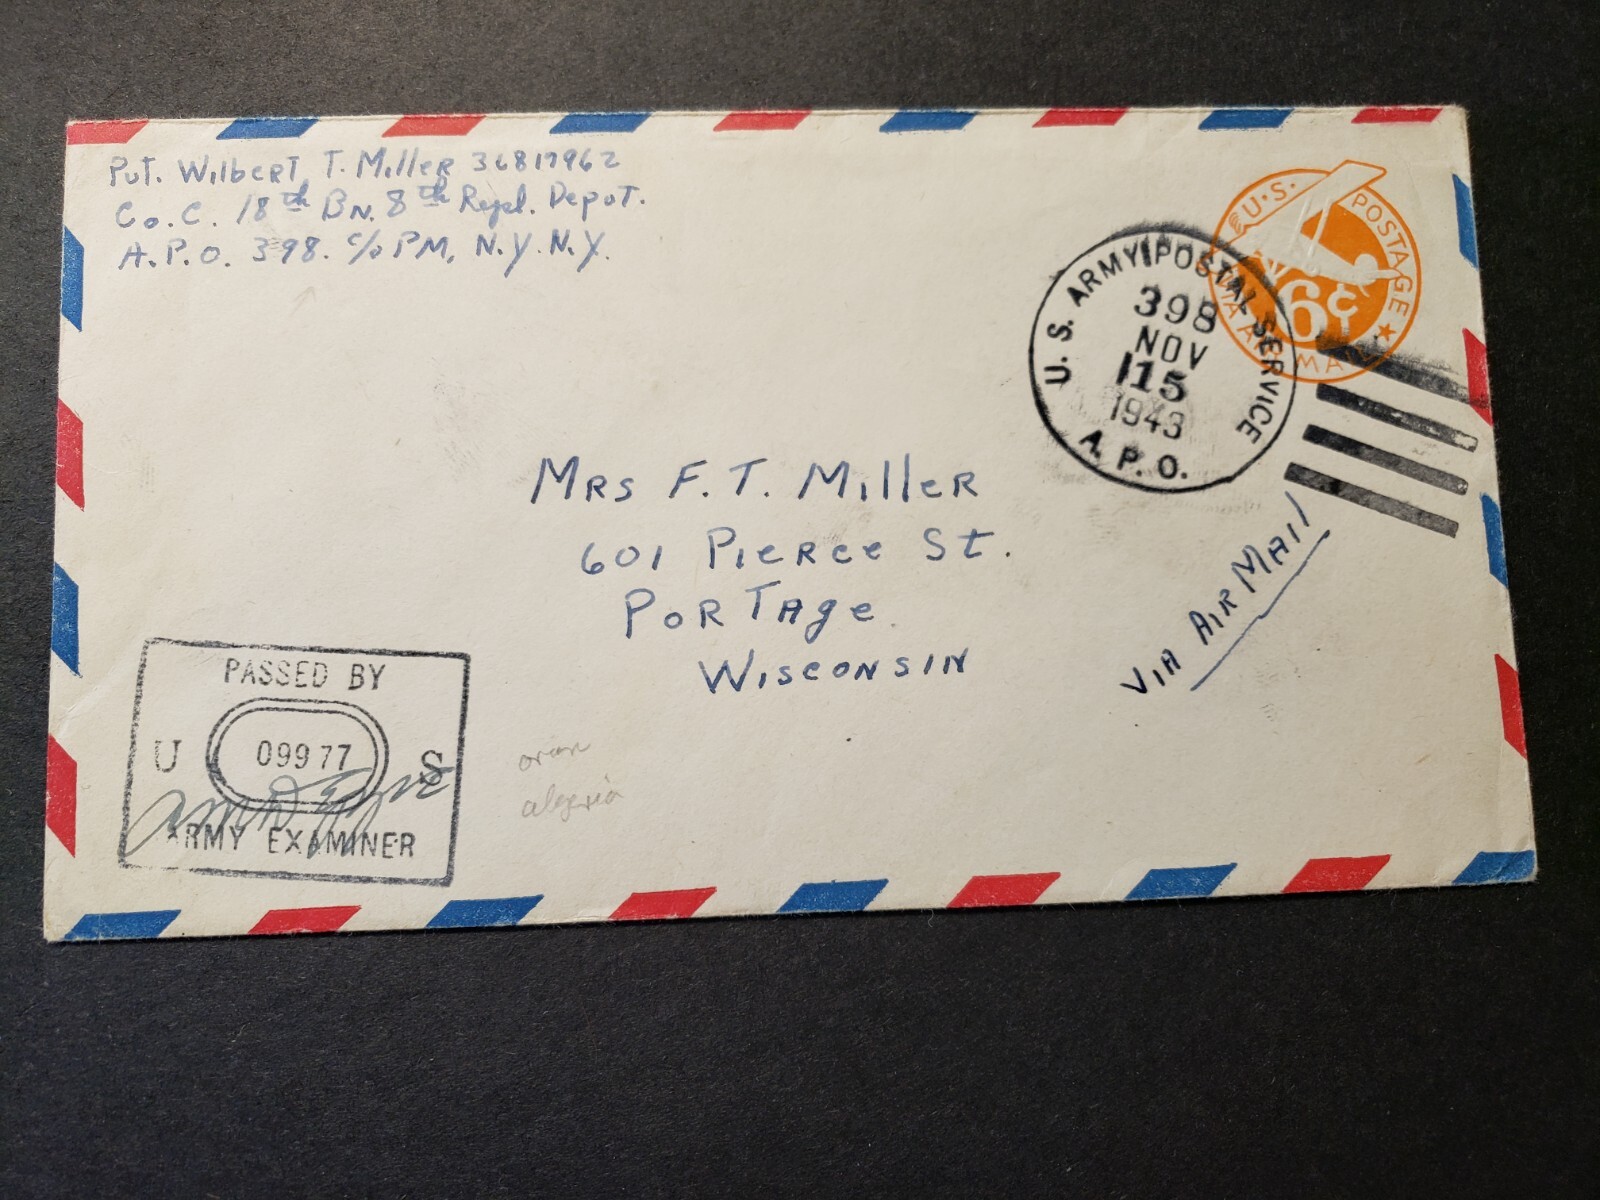 Pvt. Wilbert T. Miller 36817962
Co. C. 18th Bn. 8th Repl. Depot.
A.P.O. 398. c/o PM, N.Y. N.Y.
U.S. POSTAGE
6¢
VIA AIR MAIL
U.S. ARMY POSTAL SERVICE
398
NOV
15
1943
A.P.O.
Mrs F. T. Miller
601 Pierce St.
Portage
Wisconsin
VIA AIR MAIL
PASSED BY
U 09977 S
ARMY EXAMINER
oran
algeria